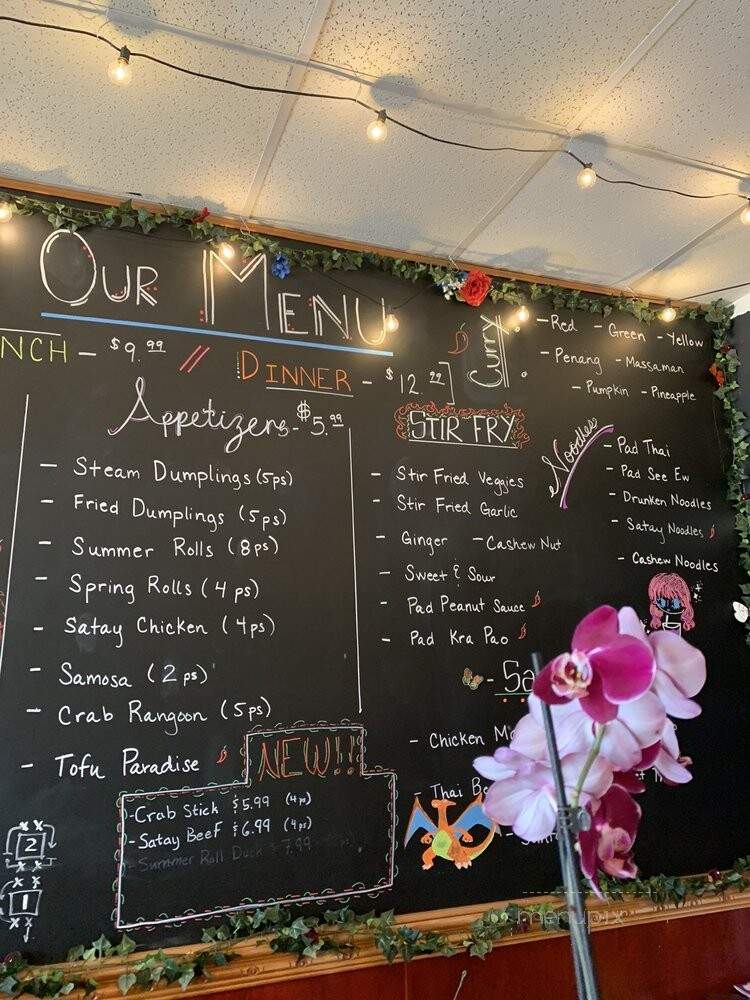 OUR MENU
NCH - $9.99 // DINNER - $12.99
Appetizers - $5.99
- Steam Dumplings (5ps)
- Fried Dumplings (5ps)
- Summer Rolls (8ps)
- Spring Rolls (4ps)
- Satay Chicken (4ps)
- Samosa (2ps)
- Crab Rangoon (5ps)
- Tofu Paradise
NEW!!
- Crab Stick $5.99 (4ps)
- Satay Beef $6.99 (4ps)
- Summer Roll Duck $7.99
2
1
Curry
- Red - Green - Yellow
- Penang - Massaman
- Pumpkin - Pineapple
STIR FRY
- Stir Fried Veggies
- Stir Fried Garlic
- Ginger - Cashew Nut
- Sweet & Sour
- Pad Peanut Sauce
- Pad Kra Pao
Noodles
- Pad Thai
- Pad See Ew
- Drunken Noodles
- Satay Noodles
- Cashew Noodles
- Sa
- Chicken
- Thai Be
menupix